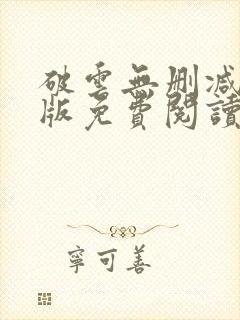 破雲無刪減
版免費閱讀
寧可善